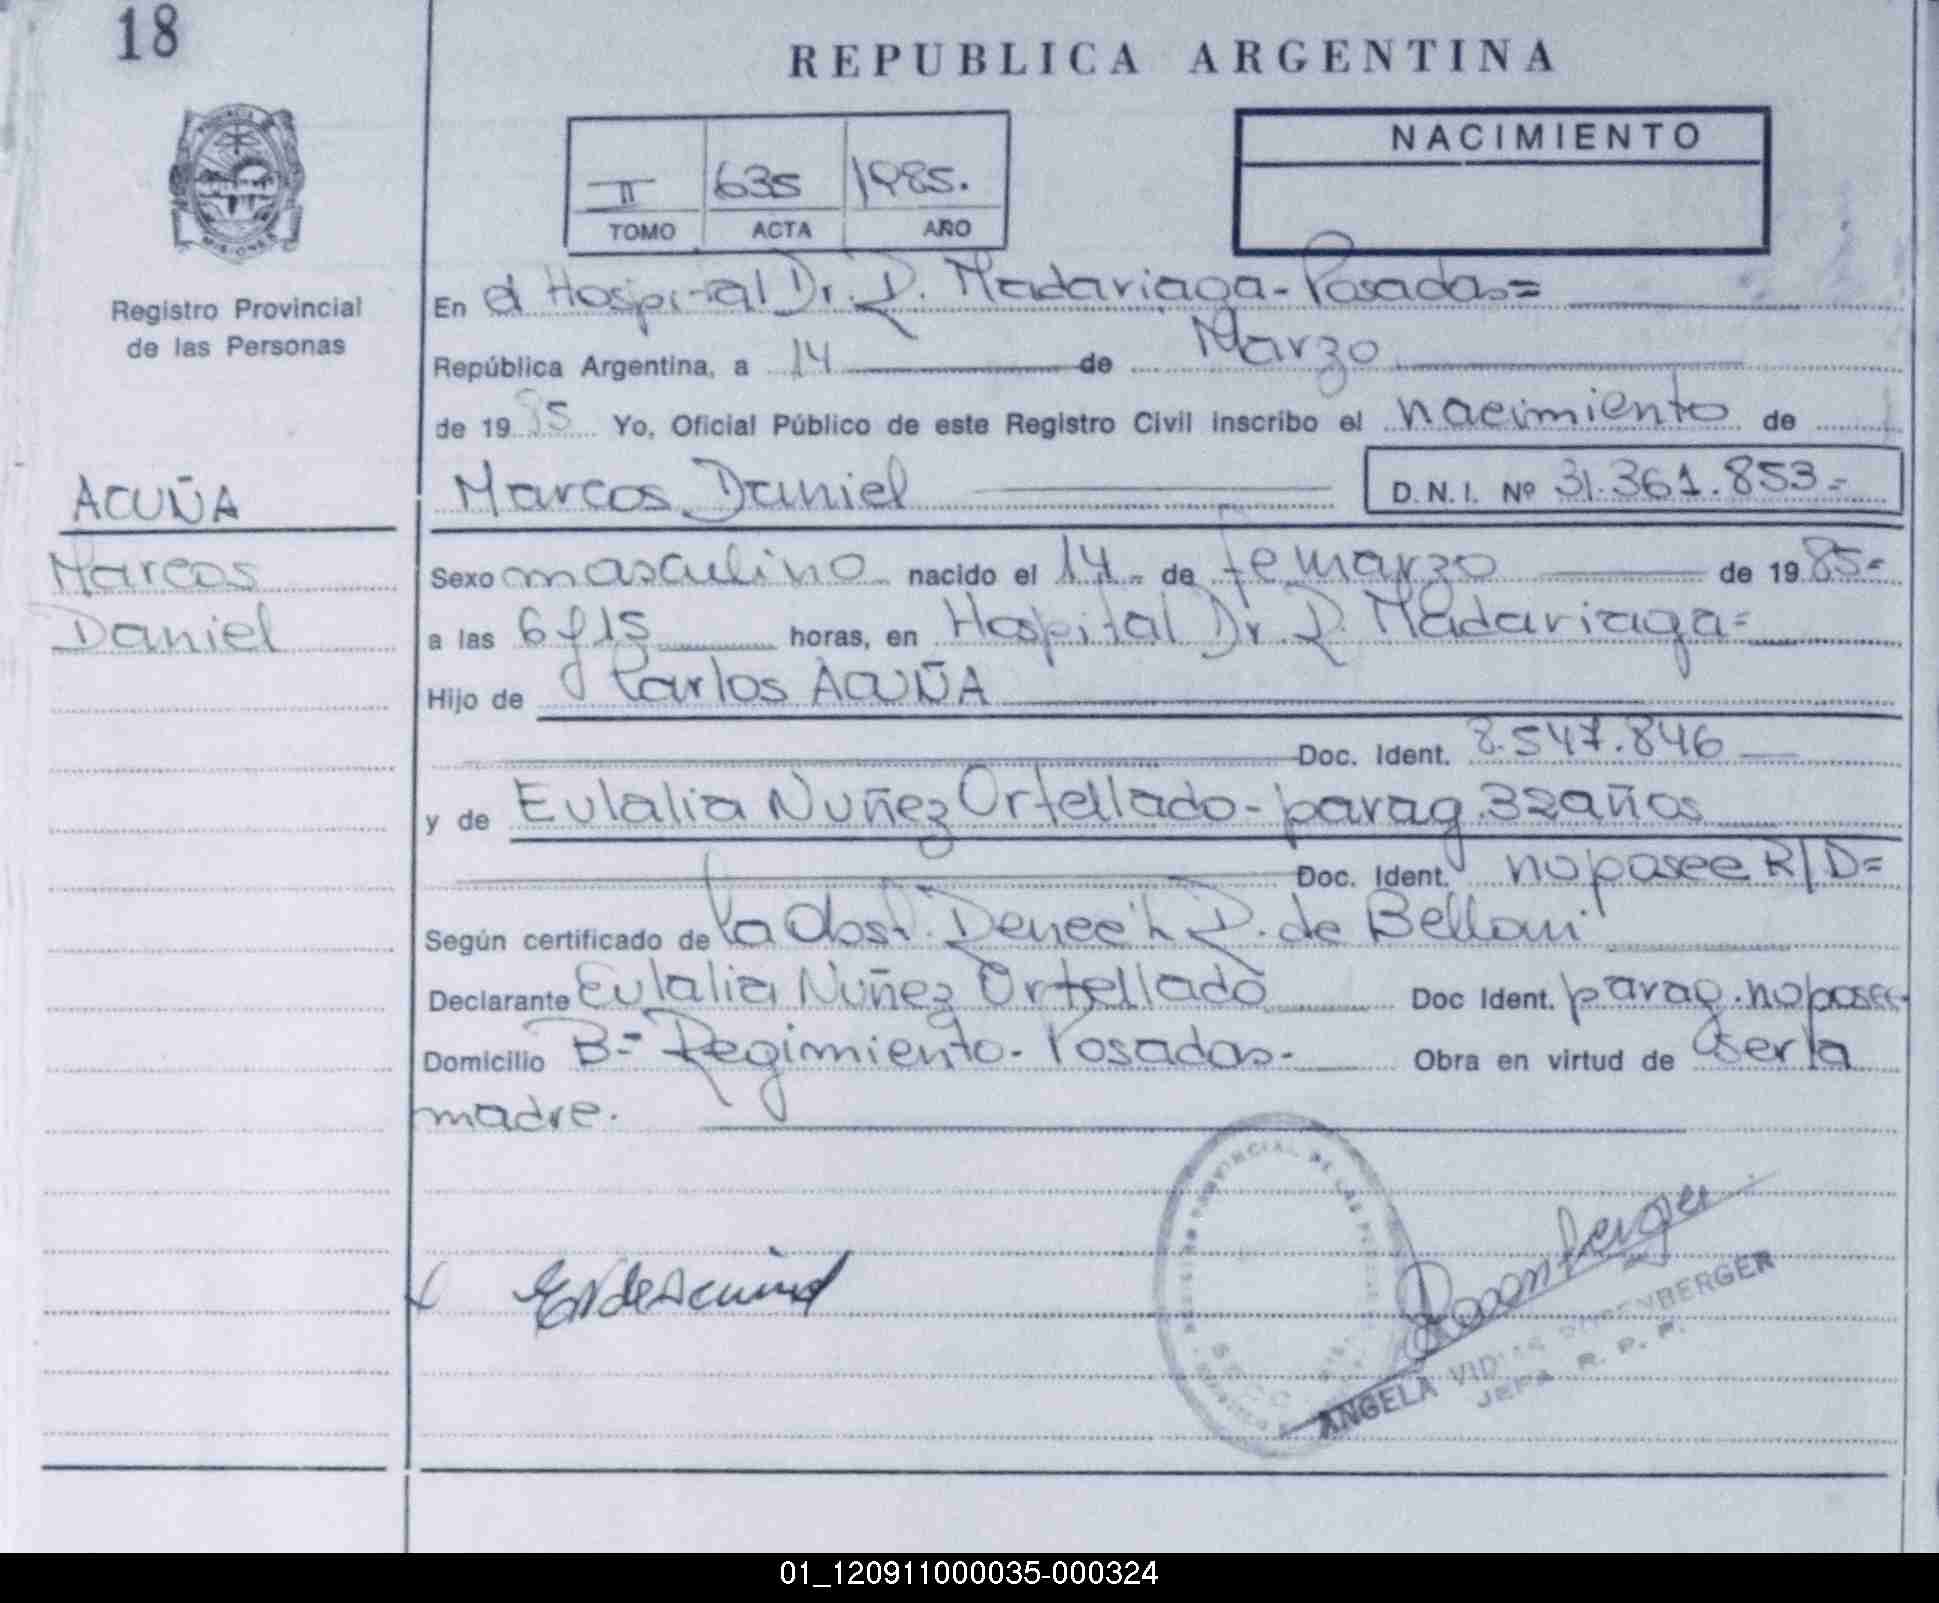 18
REPUBLICA ARGENTINA
NACIMIENTO
II 635 1985.
TOMO ACTA AÑO
MISIONES
Registro Provincial
de las Personas
En el Hospital Dr. R. Madariaga - Posadas =
República Argentina, a 14 de Marzo
de 1985 Yo, Oficial Público de este Registro Civil inscribo el nacimiento de
ACUÑA
Marcos
Daniel
Marcos Daniel D.N.I. Nº 31.361.853.-
Sexo masculino nacido el 14.- de fe marzo de 1985=
a las 6 y 15 horas, en Hospital Dr. R. Madariaga=
Hijo de Carlos ACUÑA
Doc. Ident. 8.547.846
y de Eulalia Nuñez Ortellado - parag. 32 años
Doc. Ident. no posee R/D=
Según certificado de la Obst. R. de Belloni
Declarante Eulalia Nuñez Ortellado Doc Ident. parag. no posee
Domicilio B:- Regimiento - Posadas - Obra en virtud de ser la
madre.
REGISTRO PROVINCIAL DE LAS
Rosenberger
ANGELA ROSENBERGER
JEFA R. P. P.
01_120911000035-000324